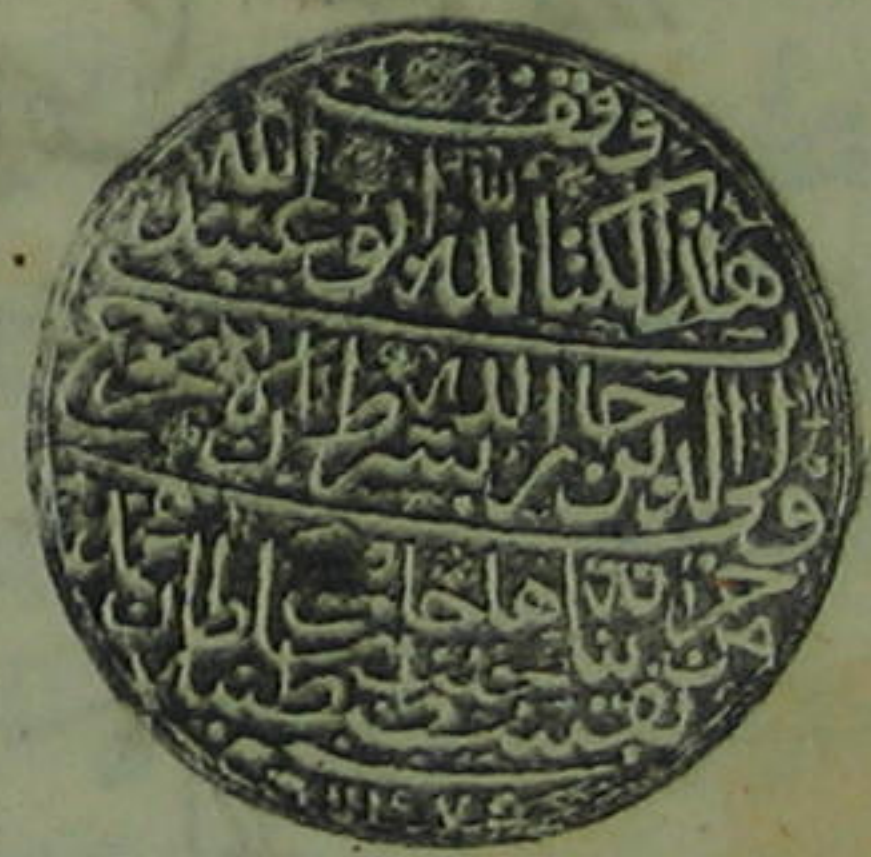 وقف
هذا الكتاب لله ابو عبد الله
ولي الدين جار الله بشرط ان لا يخرج
من خزانة بناها جامع سلطان محمد
بقسطنطينية